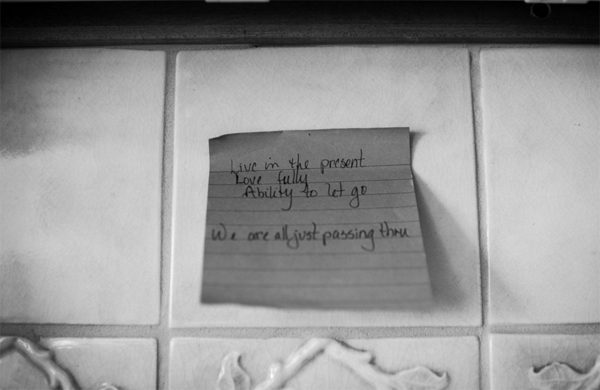 Live in the present
Love fully
Ability to let go
We are all just passing thru